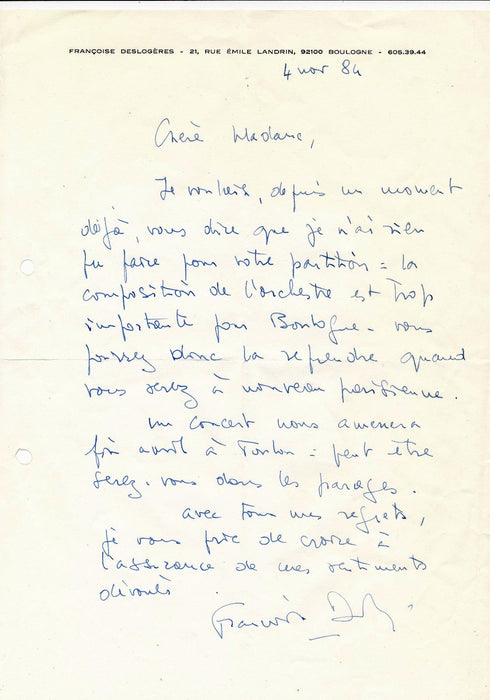 FRANÇOISE DESLOGÈRES - 21, RUE ÉMILE LANDRIN, 92100 BOULOGNE - 605.39.44
4 nov 84
Chère Madame,
Je voulais, depuis un moment
déjà, vous dire que je n'ai rien
pu faire pour votre partition : la
composition de l'orchestre est trop
importante pour Boulogne. vous
pouvez donc la reprendre quand
vous serez à nouveau parisienne.
un concert nous amenera
fin avril à Toulon : peut être
serez-vous dans les parages.
avec tous mes regrets,
je vous prie de croire à
l'assurance de mes sentiments
dévoués
Françoise